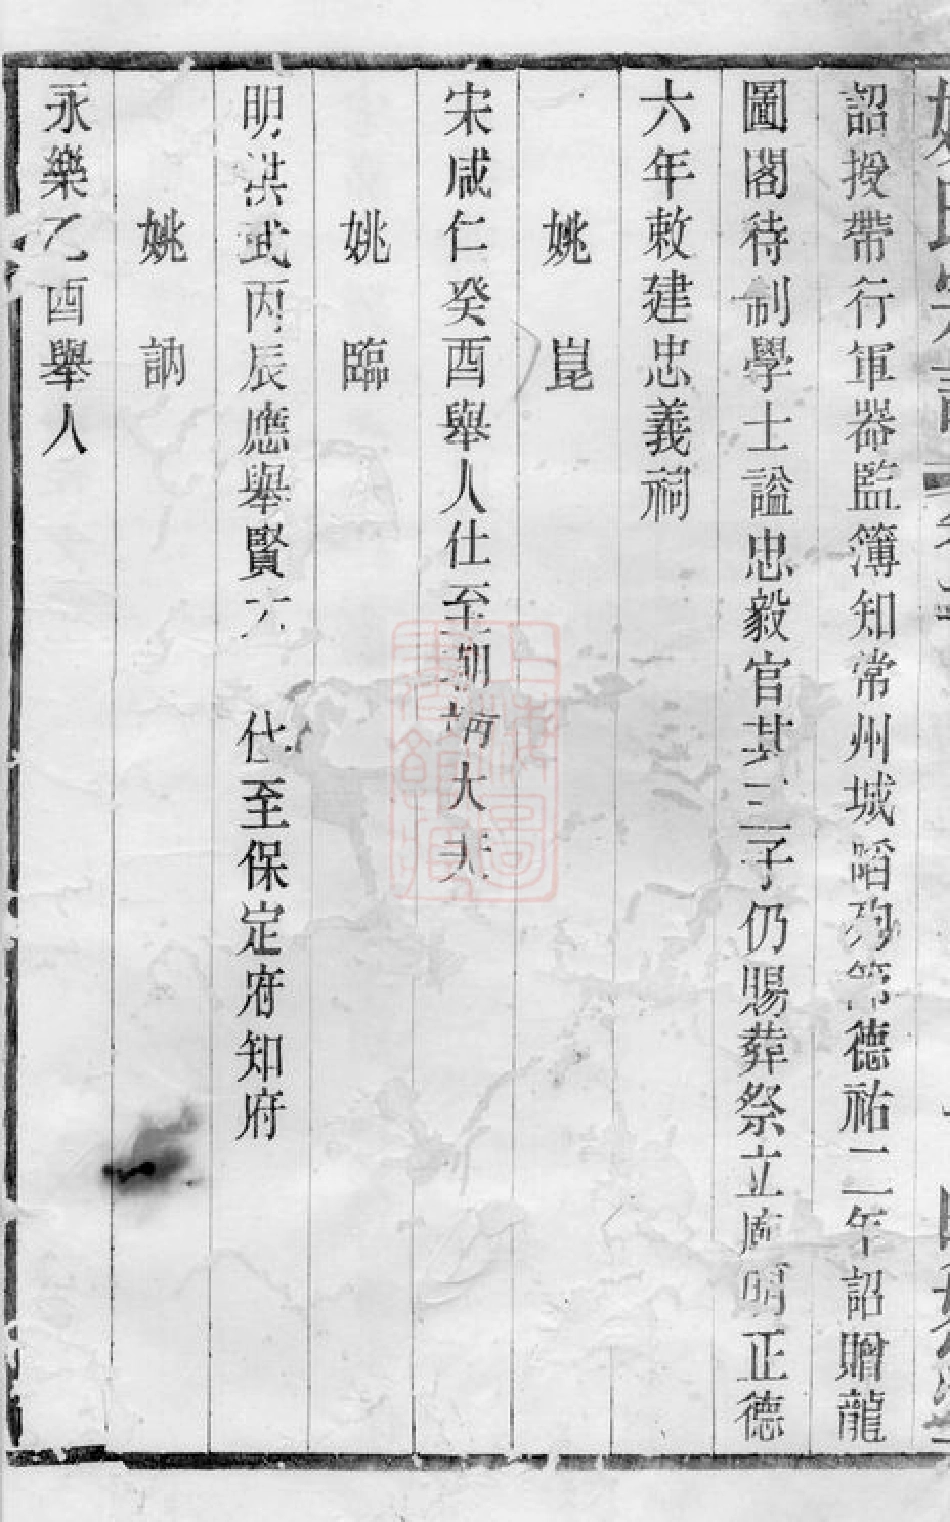 詔授帶行軍器監簿知常州城陷殉節德祐二年詔贈龍
圖閣待制學士謚忠毅官其三子仍賜葬祭立廟明正德
六年敕建忠義祠
姚崑
宋咸仁癸酉舉人仕至朝請大夫
姚臨
明洪武丙辰應舉賢 仕至保定府知府
姚訥
永樂乙酉舉人